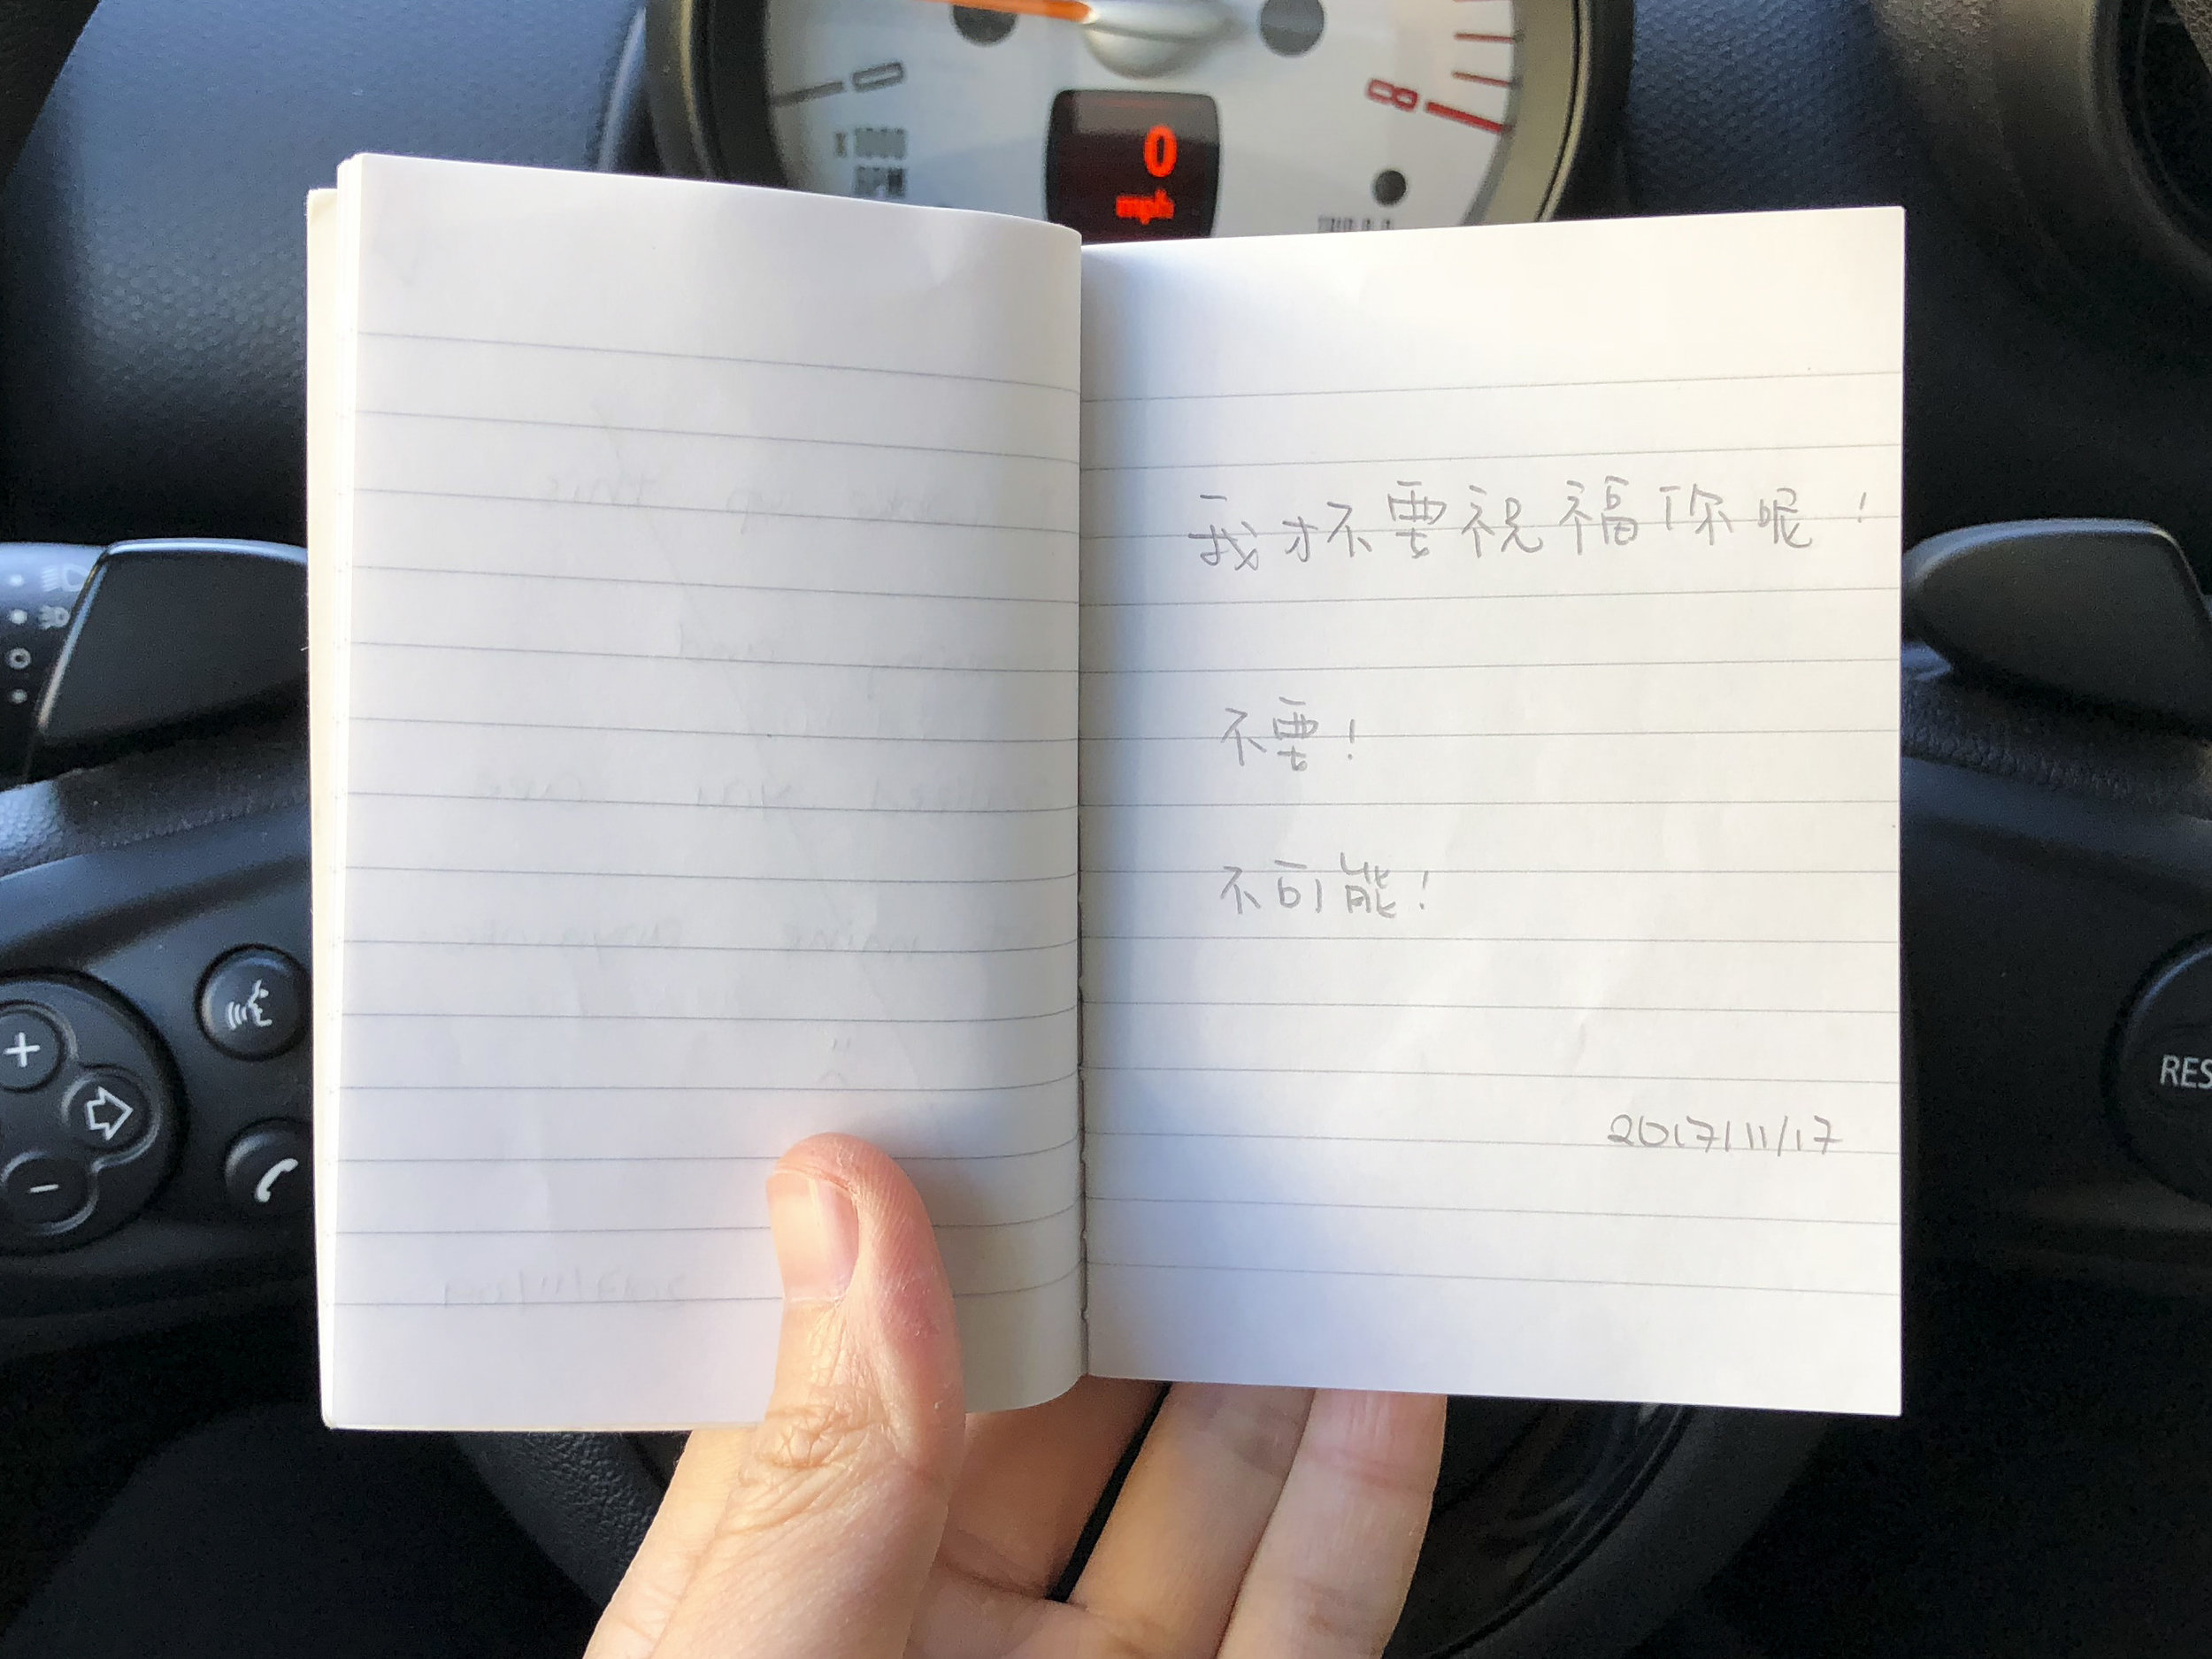 0
8
x 1000
RPM
0
mph
我才不要祝福你呢！
不要！
不可能！
2017/11/17
+
-
RES